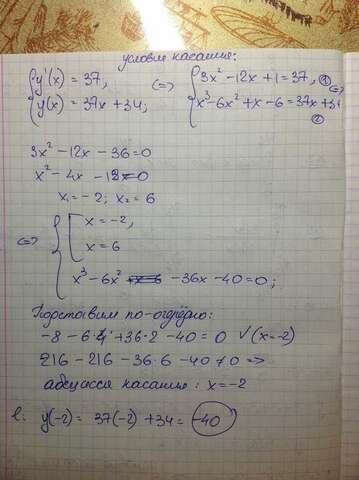 условия касания:
{ y'(x) = 37, <=> { 3x² - 12x + 1 = 37, ①
y(x) = 37x + 34; x³ - 6x² + x - 6 = 37x + 34 ②
3x² - 12x - 36 = 0
x² - 4x - 12 = 0
x₁ = -2; x₂ = 6
<=> { [ x = -2,
x = 6
x³ - 6x² - 36x - 40 = 0;
Подставим по-очерёдно:
-8 - 6·4 + 36·2 - 40 = 0 √ (x=-2)
216 - 216 - 36·6 - 40 ≠ 0 =>
абсцисса касания: x = -2
y(-2) = 37(-2) + 34 = -40